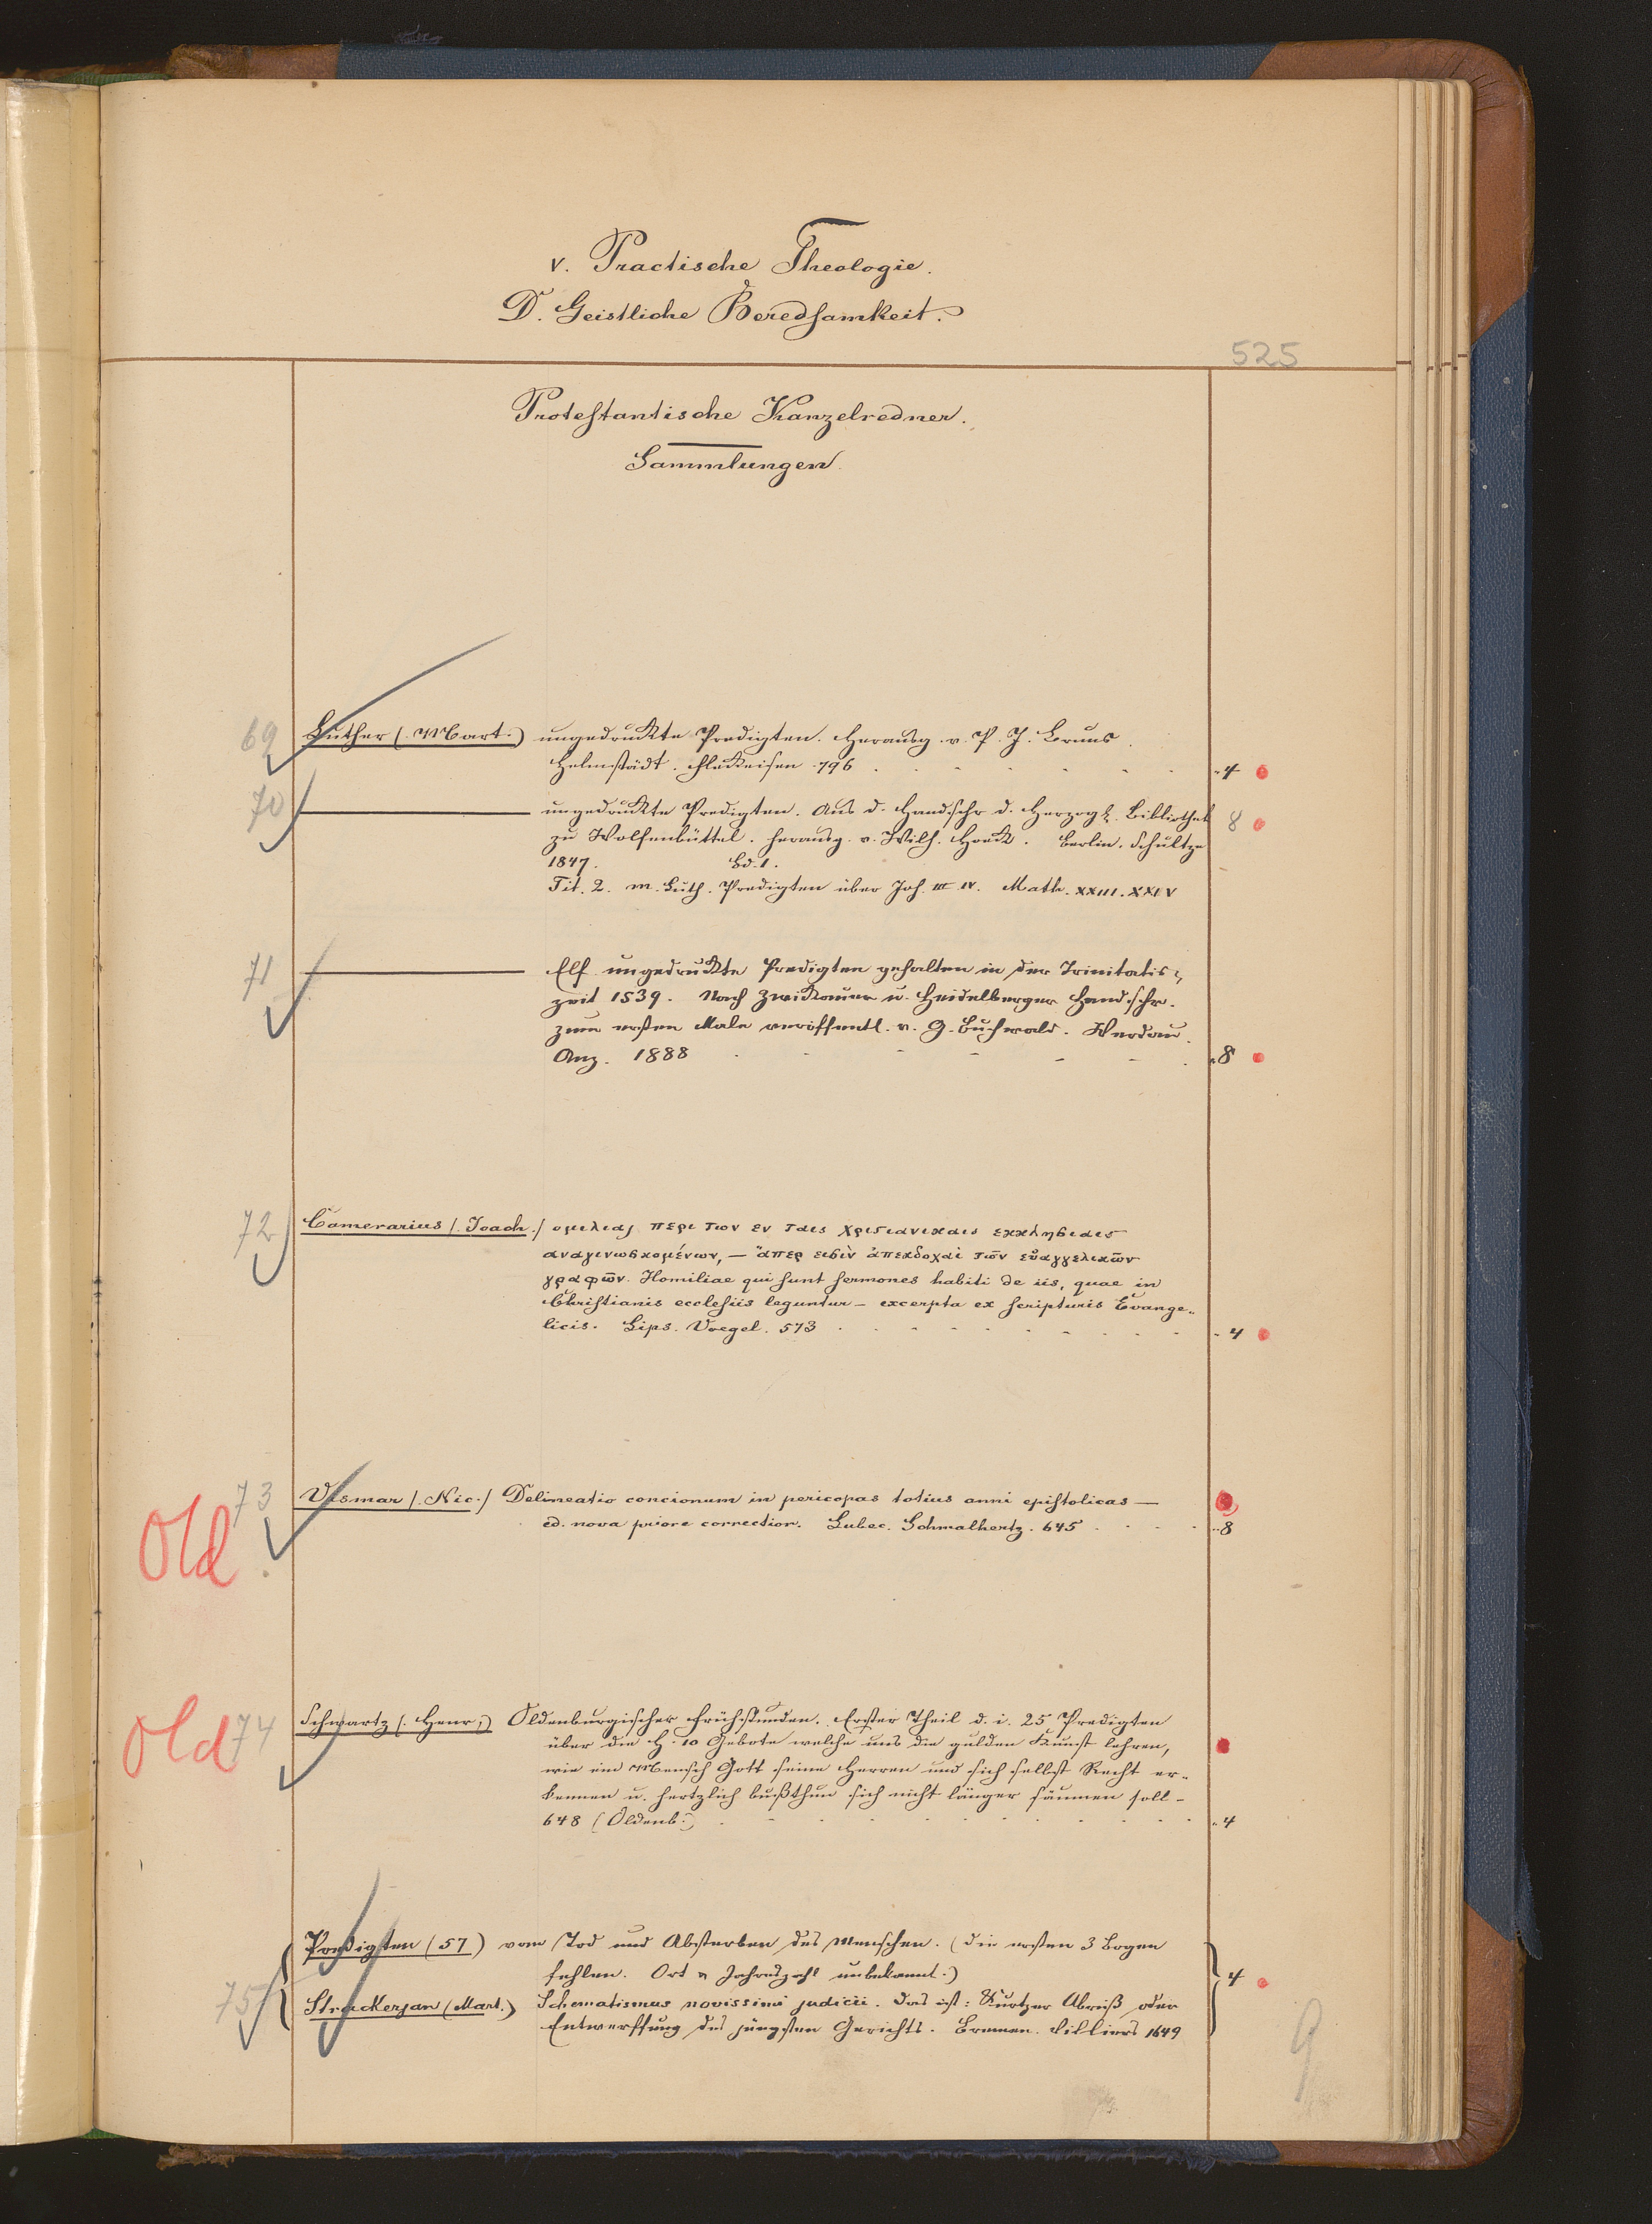 V. Practische Theologie.
D. Geistliche Beredsamkeit.
525
Protestantische Kanzelredner.
Sammlungen.
69 Luther (Mart.) ungedruckte Predigten. Herausg. v. P. J. Bruns.
Helmstädt. Fleckeisen 796 4
70 ungedruckte Predigten. Aus d. Handschr. d. Herzogl. Bibliothek 8
zu Wolfenbüttel. herausg. v. Wilh. Hoeck. Berlin. Schultze
1847. Bd. 1.
Tit. 2. M. Luth. Predigten über Joh. III IV. Math. XXIII. XXIV
71 Elf ungedruckte Predigten gehalten in der Trinitatis-
zeit 1539. Nach Zwickauer u. Heidelberger Handschr.
zum ersten Male veröffentl. v. G. Buchwald. Werdau.
Anz. 1888 8
72 Camerarius (Joach.) ομιλιαι περι των εν ταις χριστιανικαις εκκλησιαις
αναγινωσκομένων, — ἅπερ εισὶν ἀπεκδοχαὶ τῶν εὐαγγελικῶν
γραφῶν. Homiliae qui sunt sermones habiti de iis, quae in
Christianis ecclesiis leguntur – excerpta ex scripturis Evange-
licis. Lips. Voegel. 573 4
Old 73 Vismar (Nic.) Delineatio concionum in pericopas totius anni epistolicas —
ed. nova priore correctior. Lubec. Schmalhertz. 645 8
Old 74 Schwartz (Henr.) Oldenburgischer Frühstunden. Erster Theil d. i. 25 Predigten
über die H. 10 Gebote welche uns die gulden Kunst lehren,
wie ein Mensch Gott seine Herren und sich selbst Recht er-
kennen u. hertzlich bußthun sich nicht länger säumen soll –
648 (Oldenb.) 4
Predigten (57) vom Tod und Absterben des Menschen. (die ersten 3 Bogen
fehlen. Ort u Jahreszahl unbekannt.) 4
75 Strackerjan (Mart.) Schematismus novissimi judicii. das ist: Kurtzer Abriß oder
Entwerffung des jüngsten Gerichts. Bremen. Villiers 1649
9